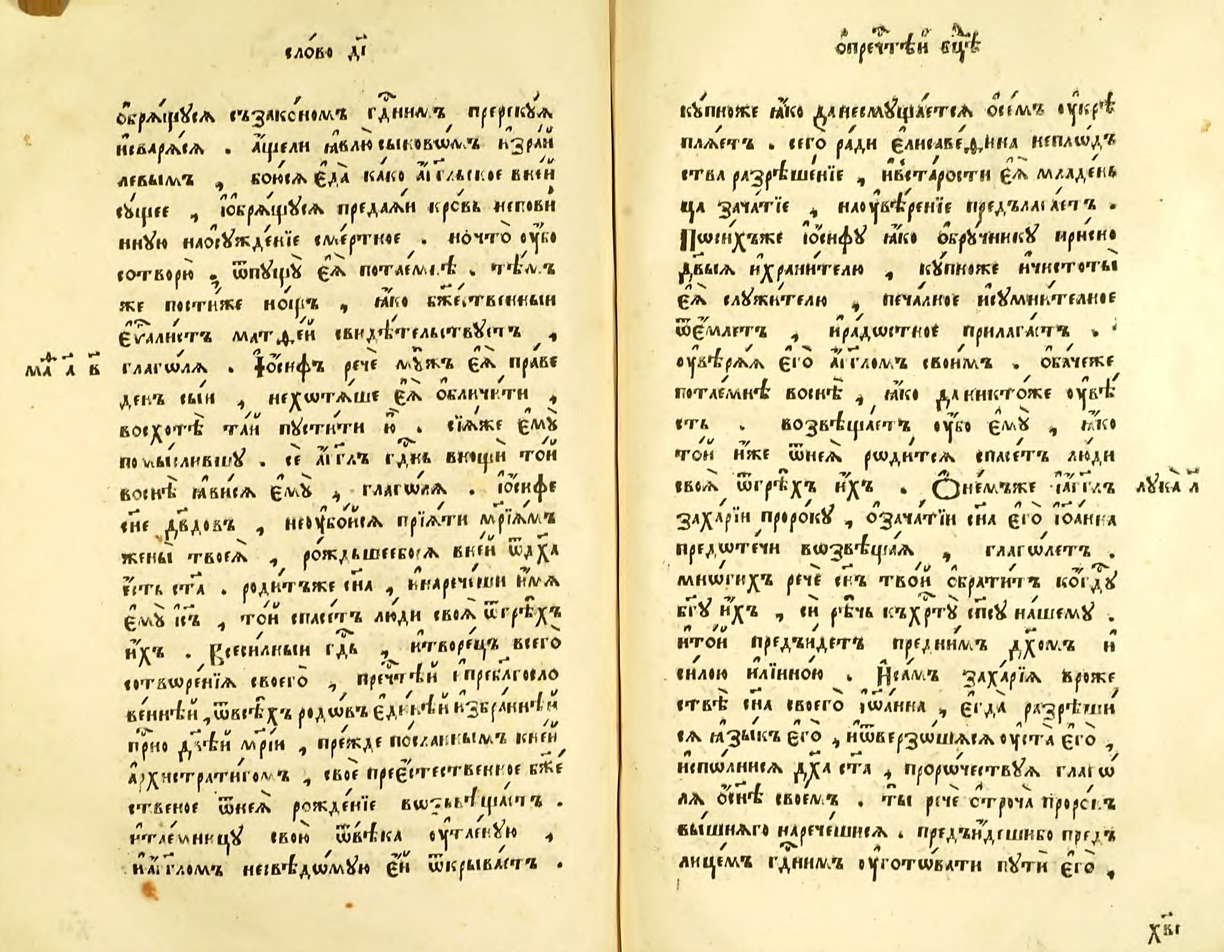 сло́во д҃і
ѡ҆брѧ́щꙋсѧ съзако́номъ гдⷭ҇нимъ пререкꙋ́ѧ
и҆сварѧ́ѧсѧ . а҆́щели ꙗ҆влю̀ сыновѡ́мъ и҆зра́и
левымъ , бою́сѧ є҆да̀ ка́ко а҆́гг҃льское вне́й
сꙋ́щее , и҆ѡ҆брѧ́щꙋсѧ преда́ѧи кро́вь непови́
ннꙋю наѡ҆сꙋжде́нїе сме́ртное . но́что ᲂу҆́бо
сотворю̀ , ѿпꙋщꙋ̀ є҆ѧ̀ пота́емнѣ . тѣ́мъ
же пости́же но́щъ , ꙗ҆́ко бж҃е́ственныи
є҆ѵⷢ҇али́стъ матѳе́й свидѣ́тельствꙋетъ ,
глаго́лѧ . І҆ѡ́сифъ речѐ мꙋ́жъ є҆ѧ̀ пра́ве
денъ сы́и , нехотѧ́ше є҆ѧ̀ ѡ҆бличи́ти ,
восхотѣ̀ та́й пꙋсти́ти ю҆̀ . сїѧ́же є҆мꙋ̀
помы́слившꙋ . сѐ а҆́гг҃лъ гдⷭ҇нь внощѝ то́й
воснѣ̀ ꙗ҆ви́сѧ є҆мꙋ̀ , глаго́лѧ . і҆ѡ́сифе
сн҃е дв҃довъ , неᲂу҆бо́йсѧ прїѧ́ти мр҃їа́мъ
жены̀ твоеѧ̀ , ро́ждьшеебосѧ вне́й ѿдх҃а
є҆́сть ст҃а . роди́тъже сн҃а , и҆нарече́ши и҆́мѧ
є҆мꙋ̀ і҆с҃ъ , то́й спасе́тъ лю́ди своѧ̀ ѿгрѣ́хъ
и҆́хъ . Всеси́лныи гдⷭ҇ь , и҆творе́цъ всего̀
сотворе́нїѧ своего̀ , преч҃тѣй и҆пребл҃агосло
ве́ннѣй , ѿвсѣ́хъ родо́въ є҆ди́нѣй и҆збра́ннѣй
при́но дв҃ѣй мр҃і́и , пре́жде посла́ннымъ кне́й
а҆рхистрати́гомъ , своѐ прее҆сте́ственное бж҃е́
ственое ѿнеѧ̀ рожде́нїе возвѣща́етъ .
и҆та́емницꙋ свою̀ ѿвѣ́ка ᲂу҆та́енꙋю ,
и҆а҆́гг҃ломъ несвѣ́домꙋю є҆́й ѿкрыва́етъ .
ма́ѳ а҃ в҃
ѡ҆преч҃тѣй бц҃ѣ
кꙋ́пноже ꙗ҆́ко да́несмꙋща́етсѧ ѡ҆се́мъ ᲂу҆крѣ
плѧ́етъ . сего̀ ра́ди є҆лисаве́ѳина непло́дъ
ства разрѣше́нїе , и҆вста́рости є҆ѧ̀ младе́нь
ца зача́тїе , наᲂу҆вѣре́нїе предълага́етъ .
Посиⷯже і҆ѡ́сифꙋ ꙗ҆́ко ѡ҆брꙋ́чникꙋ присно
дв҃ыѧ и҆храни́телю , кꙋ́пноже и҆чистоты̀
є҆ѧ̀ слꙋжи́телю , печа́лное и҆сꙋмни́телное
ѿе́млетъ , и҆ра́достное прилага́етъ .
ᲂу҆вѣрѧ́ѧ є҆го̀ а҆́гг҃ломъ свои́мъ . ѡ҆ба́чеже
пота́емнѣ воснѣ̀ , ꙗ҆́ко даникто́же ᲂу҆вѣ́
сть . возвѣща́етъ ᲂу҆́бо є҆мꙋ̀ , ꙗ҆́ко
то́й и҆́же ѿнеѧ̀ роди́тсѧ спасе́тъ лю́ди
своѧ̀ ѿгрѣ́хъ и҆́хъ . Ѡ҆не́мъже і҆а҆́гг҃лъ
заха́рїи проро́кꙋ , ѡ҆зача́тїи сн҃а є҆го̀ і҆ѡа́нна
предоте́чи возвѣща́ѧ , глаго́летъ .
мно́гихъ речѐ сн҃ъ тво́й ѡ҆брати́тъ ко́гдⷭ҇ꙋ
бг҃ꙋ и҆́хъ , си́ рѣ́чь къхрⷭ҇тꙋ̀ сп҃сꙋ на́шемꙋ .
и҆то́й предъи́детъ предни́мъ дх҃омъ и҆
си́лою и҆лїи́ною . И҆са́мъ заха́рїѧ вро́же
ствѣ̀ сн҃а своего̀ і҆ѡа́нна , є҆гда̀ разрѣши́
сѧ ꙗ҆зы́къ є҆го̀ , и҆ѿверзо́шасѧ ᲂу҆ста̀ є҆го̀ ,
и҆спо́лнисѧ дх҃а ст҃а , проро́чествꙋѧ глаго́
лѧ ѡ҆сн҃ѣ свое́мъ . ты̀ речѐ ѻ҆троча̀ проро́къ
вы́шнѧго нарече́шисѧ . предъи́дешибо предъ
лице́мъ гдⷭ҇нимъ ᲂу҆гото́вати пꙋтѝ є҆го̀ ,
лꙋка̀ а҃
хв҃і